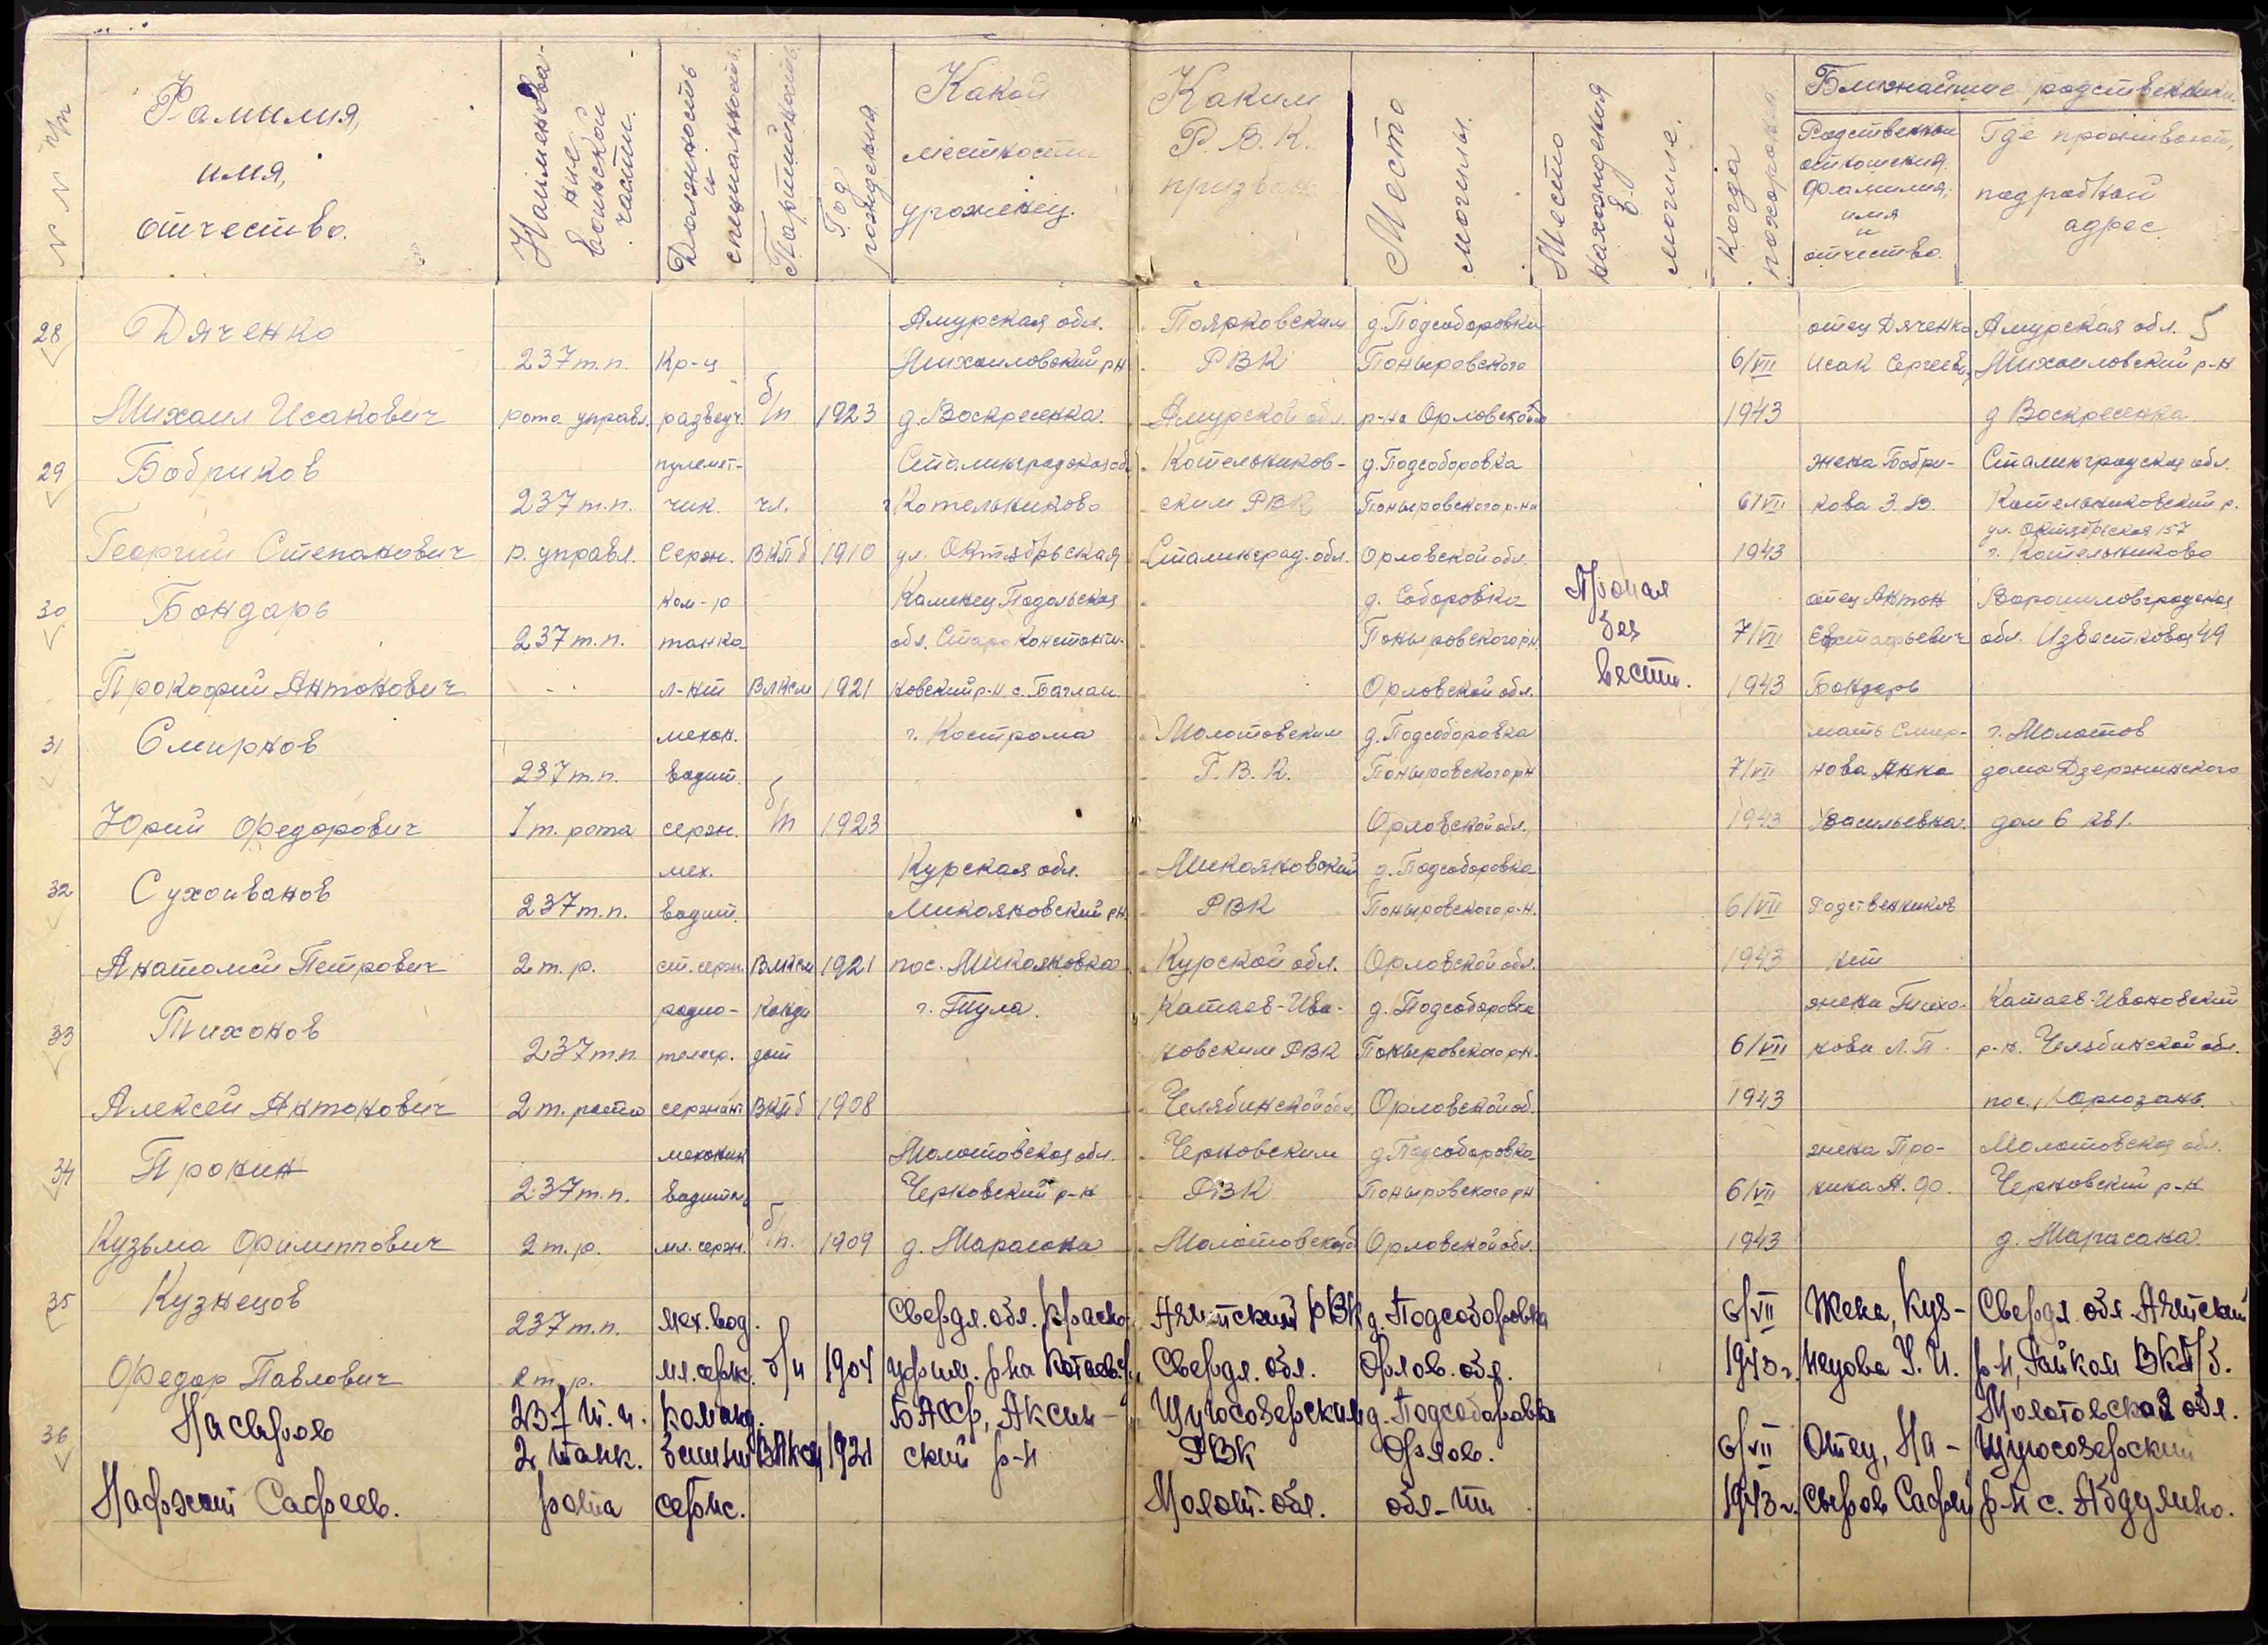 NN п/п
Фамилия,
имя,
отчество.
Наименова-
ние
воинской
части.
Должность
и
специальность.
Партийность
Год
рождения
Какой
местности
уроженец.
Каким
Р.В.К.
призван
Место
могилы.
Место
нахождения
в
могиле.
Когда
похоронен
Ближайшие родственники
Родственные
отношения,
фамилия,
имя
и
отчество.
Где проживают,
подробный
адрес
5
28 Дяченко Амурская обл. Поярковским д. Подсоборовка отец Дяченко Амурская обл.
237 т.п. Кр-ц Михайловский р-н РВК Поныровского 6/VII Исак Сергеев. Михайловский р-н
Михаил Исакович рота управл. разведч. б/п 1923 д. Воскресенка. Амурской обл. р-на Орловской 1943 д Воскресенка
29 Бобриков пулемет- Сталинградская об. Котельников- д. Подсоборовка жена Бобри- Сталинградская обл.
237 т.п. чик. чл. г Котельниково ским РВК Поныровского р-на 6/VII кова З. В. Котельниковский р.
ул. Октябрьская 157
Георгий Степанович р. управл. Серж. ВКПб 1910 ул. Октябрьская Сталинград. обл. Орловской обл. 1943 г. Котельниково
30 Бондарь ком-р Каменец Подольская д. Соборовка Пропал отец Антон Ворошиловградская
237 т.п. танка обл. Старо Константи- Поныровского р-н. без 7/VII Евстафьевич обл. Известковая 49
Прокофий Антонович л-нт ВЛКСМ 1921 новский р-н. с. Баглаи. Орловской обл. вести. 1943 Бондарь
31 Смирнов механ. г. Кострома Молотовским д. Подсоборовка мать Смир- г. Молотов
237 т.п. водит. Г.В.К. Поныровского рн 7/VII нова Анна дома Дзержинского
Юрий Федорович 1 т. рота серж. б/п 1923 Орловской обл., 1943 Васильевна. дом 6 кв 1.
32 Сухоиванов мех. Курская обл. Микояновский д. Подсоборовка
237 т.п. водит. Микояновский рн. РВК Поныровского р-н. 6/VII Родственников
Анатолий Петрович 2 т. р. ст. серж. ВЛКСМ 1921 пос. Микояновка Курской обл. Орловской обл. 1943 нет
33 Тихонов радио- канди г. Тула. Катаев-Ива- д. Подсоборовка жена Тихо- Катаев-Ивановский
237 т.п. телегр. дат новским РВК Поныровского рн. 6/VII нова Л. П. р-н. Челябинской обл.
Алексей Антонович 2 т. рота сержант ВКПб 1908 Челябинской обл. Орловской об. 1943 пос. Юрюзань.
34 Пронин механик Молотовская обл. Черновским д. Подсоборовка жена Про- Молотовская обл.
237 т.п. водит. Черновский р-н РВК Поныровского рн 6/VII нина А. Ф. Черновский р-н
Кузьма Филиппович 2 т. р. мл. серж. б/п. 1909 д. Марасана Молотовской Орловской обл. 1943 д. Марасана.
35 Кузнецов Свердл. обл. Красно- Ачитский РВК д. Подсоборовка 6/VII Жена, Куз- Свердл. обл. Ачитский
237 т.п. мех. вод.
Федор Павлович 2 т. р. мл. серж. б/п 1904 уфим. р-на Свердл. обл. Орлов. обл. 1943 г. нецова У. И. р-н, Райком ВКП/б.
36 Насыров 237 т.п. команд. БАССР, Аксин- д. Подсоборовка Молотовская обл.
2 танк. башни ВЛКСМ 1921 ский р-н РВК Орлов. 6/VII Отец, На-
Сафеев. рота серж. Молот. обл. обл-ти 1943 г. сыров Сафей р-н с. Абдулино.